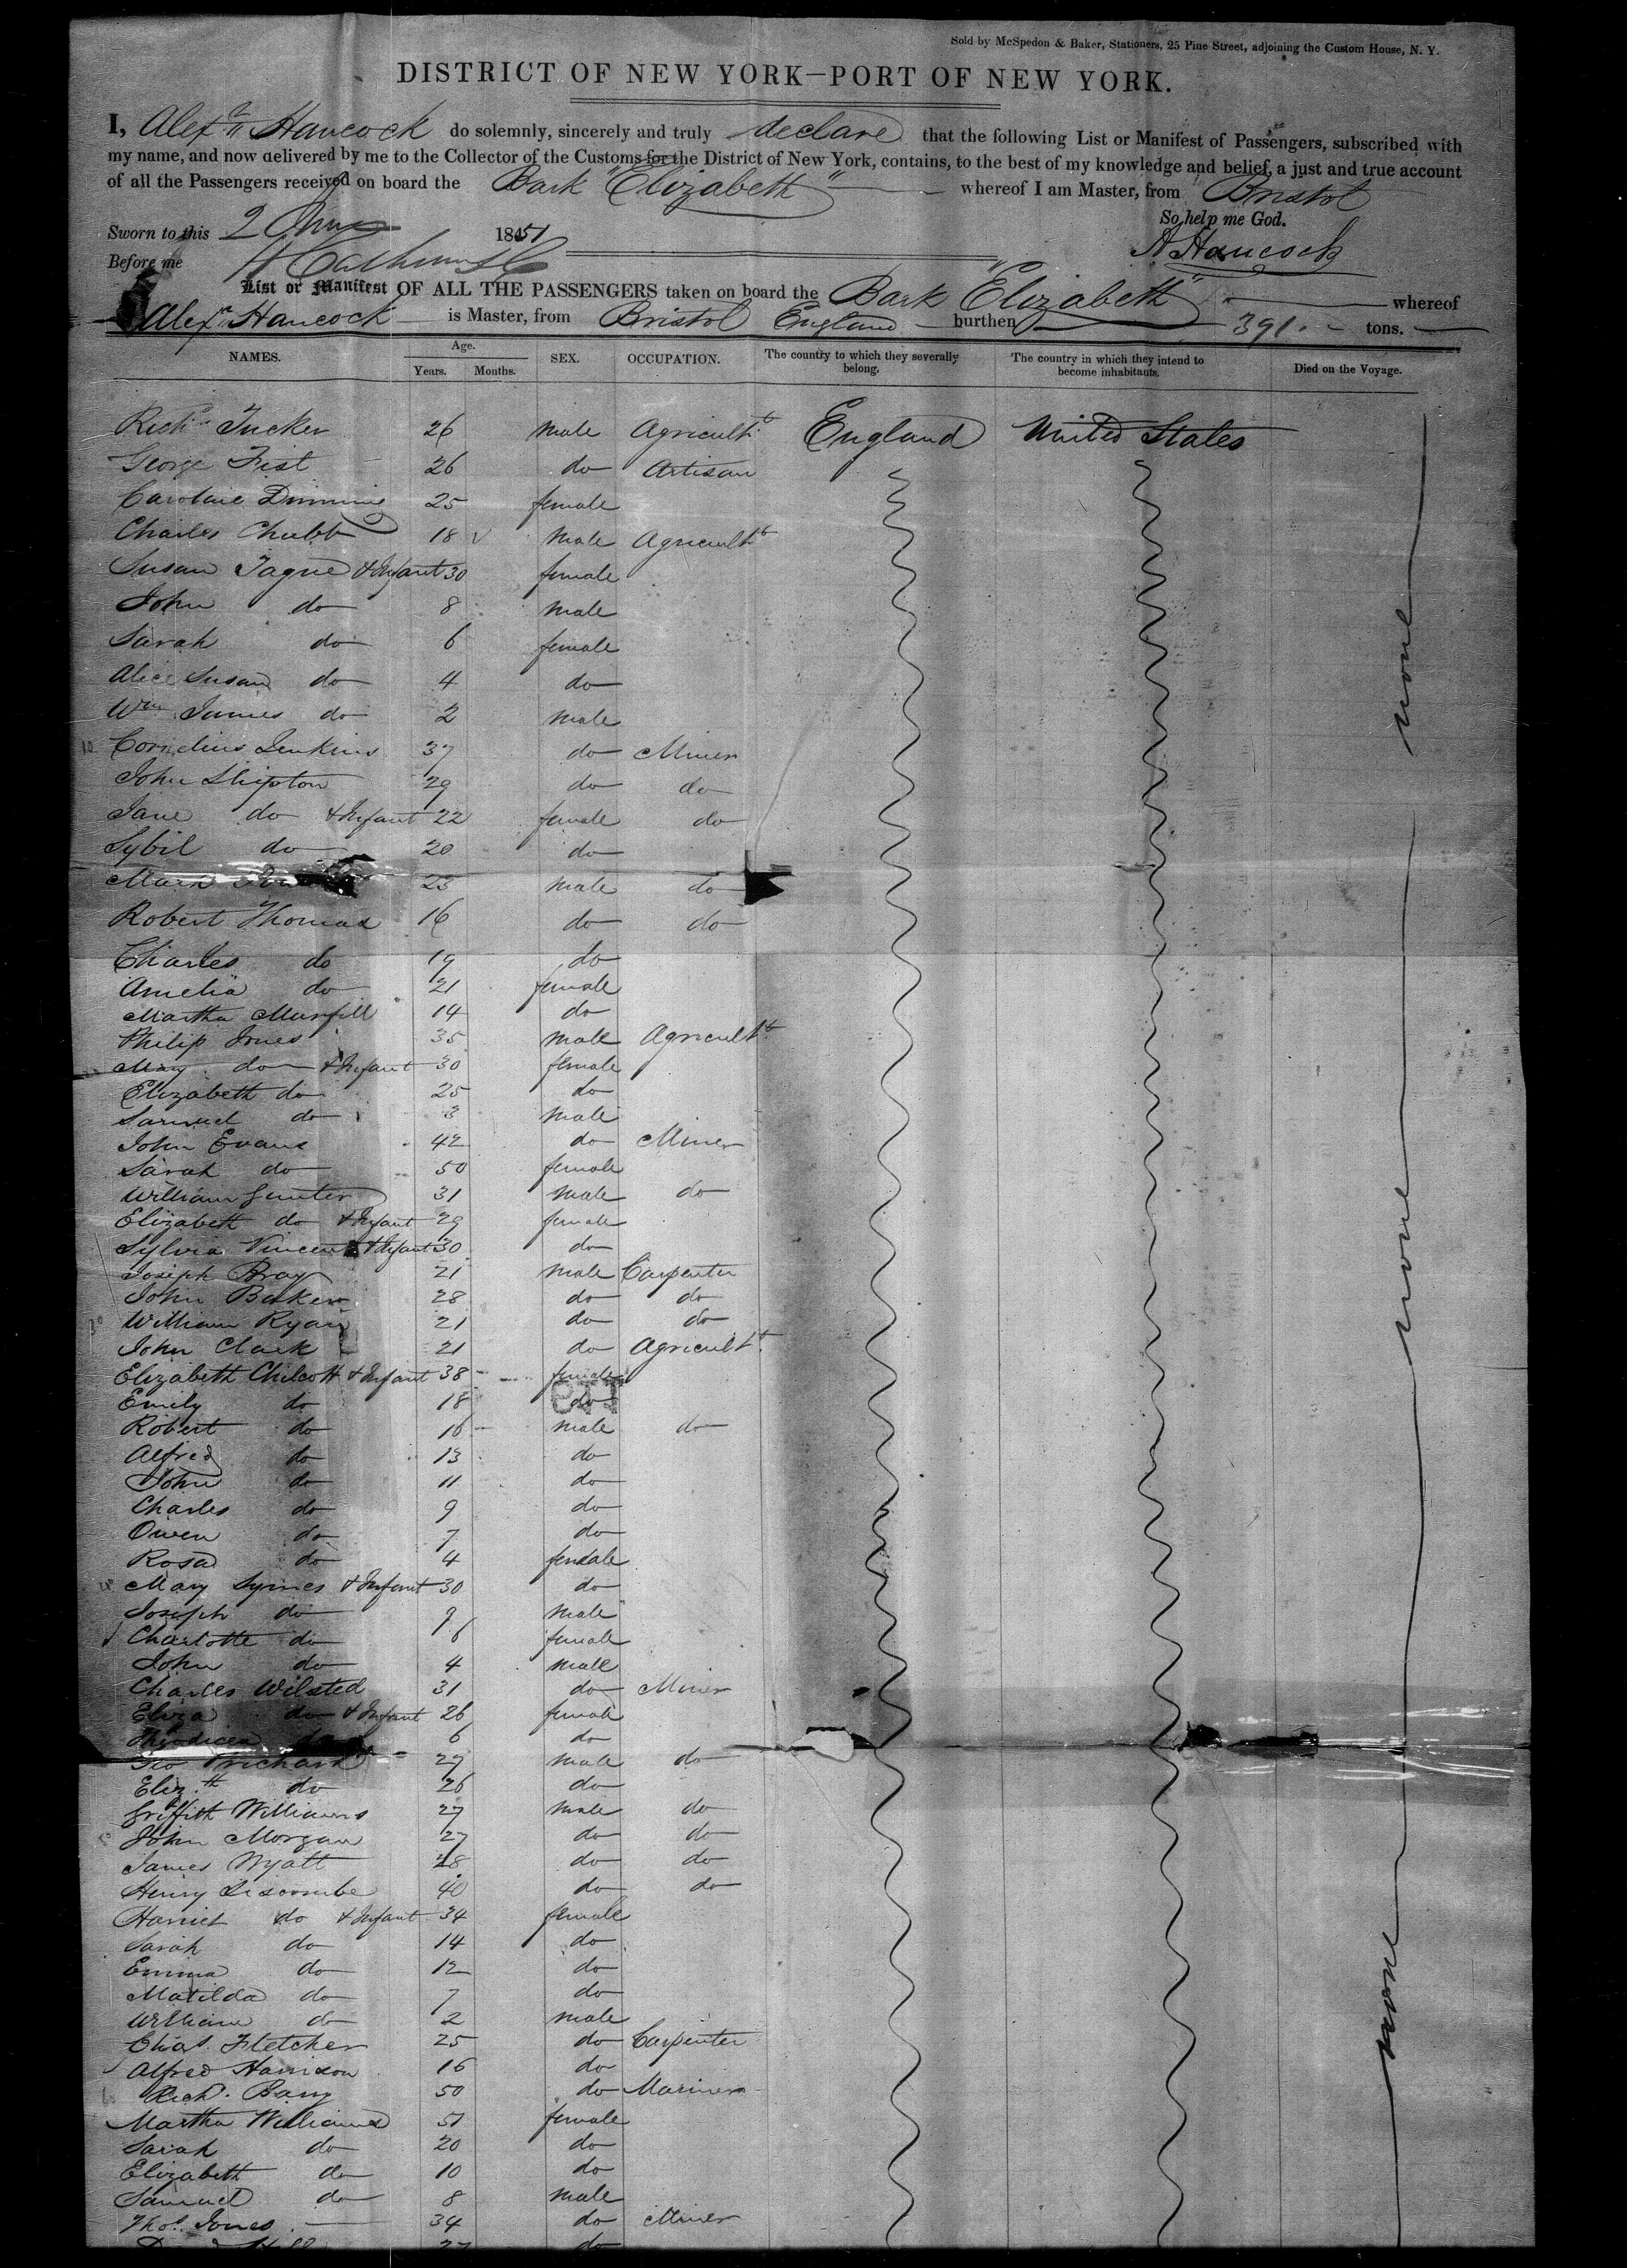 Sold by McSpedon & Baker, Stationers, 25 Pine Street, adjoining the Custom House, N. Y.
DISTRICT OF NEW YORK—PORT OF NEW YORK.
I, Alexr Hancock do solemnly, sincerely and truly declare that the following List or Manifest of Passengers, subscribed with
my name, and now delivered by me to the Collector of the Customs for the District of New York, contains, to the best of my knowledge and belief, a just and true account
of all the Passengers received on board the Bark "Elizabeth" whereof I am Master, from Bristol
So help me God.
Sworn to this 2 1851
A Hancock
Before me
List or Manifest OF ALL THE PASSENGERS taken on board the Bark "Elizabeth" whereof
Alexr Hancock is Master, from Bristol England burthen 391 tons.
NAMES. Age. Years. Months. SEX. OCCUPATION. The country to which they severally belong. The country in which they intend to become inhabitants. Died on the Voyage.
Richd Tucker 26 male Agricultt England United States
George Fist 26 do Artisan
Caroline 25 female
Charles Chubb 18 male Agricultt
Susan Tague & Infant 30 female
John do 8 male
Sarah do 6 female
Alice Susan do 4 do
Wm James do 2 male
10 Cornelius Jenkins 37 do Miner
John Shipton 29 do do
Jane do & Infant 22 female do
Sybil do 20 do
Mark 23 male do
Robert Thomas 16 do do
Charles do 19 do
Amelia do 21 female
Martha 14 do
Philip Jones 35 male Agricultt
Mary do & Infant 30 female
Elizabeth do 25 do
Samuel do 3 male
John Evans 42 do Miner
Sarah do 50 female
William Gunter 31 male do
Elizabeth do & Infant 29 female
Sylvia Vincent & Infant 30 do
Joseph Bray 21 male Carpenter
John Baker 28 do do
30 William Ryan 21 do do
John Clark 21 do Agricultt
Elizabeth Chilcott & Infant 38 female
Emily do 18 do
Robert do 16 male do
Alfred do 13 do
John do 11 do
Charles do 9 do
Owen do 7 do
Rosa do 4 female
Mary Symes & Infant 30 do
Joseph do 9 male
Charlotte do 6 female
John do 4 male
Charles Wilsted 31 do Miner
Eliza do & Infant 26 female
do 6 do
Geo Prichard 27 male do
Elizth do 26 do
Griffith Williams 27 male do
John Morgan 27 do do
James Wyatt 28 do do
Henry Liscombe 40 do do
Harriet do & Infant 34 female
Sarah do 14 do
Emma do 12 do
Matilda do 7 do
William do 2 male
Chas. Fletcher 25 do Carpenter
Alfred Harrison 16 do
Richd. Barry 50 do Mariner
Martha Williams 51 female
Sarah do 20 do
Elizabeth do 10 do
Samuel do 8 male
Thos. Jones 34 do Miner
27 do
none
none
none